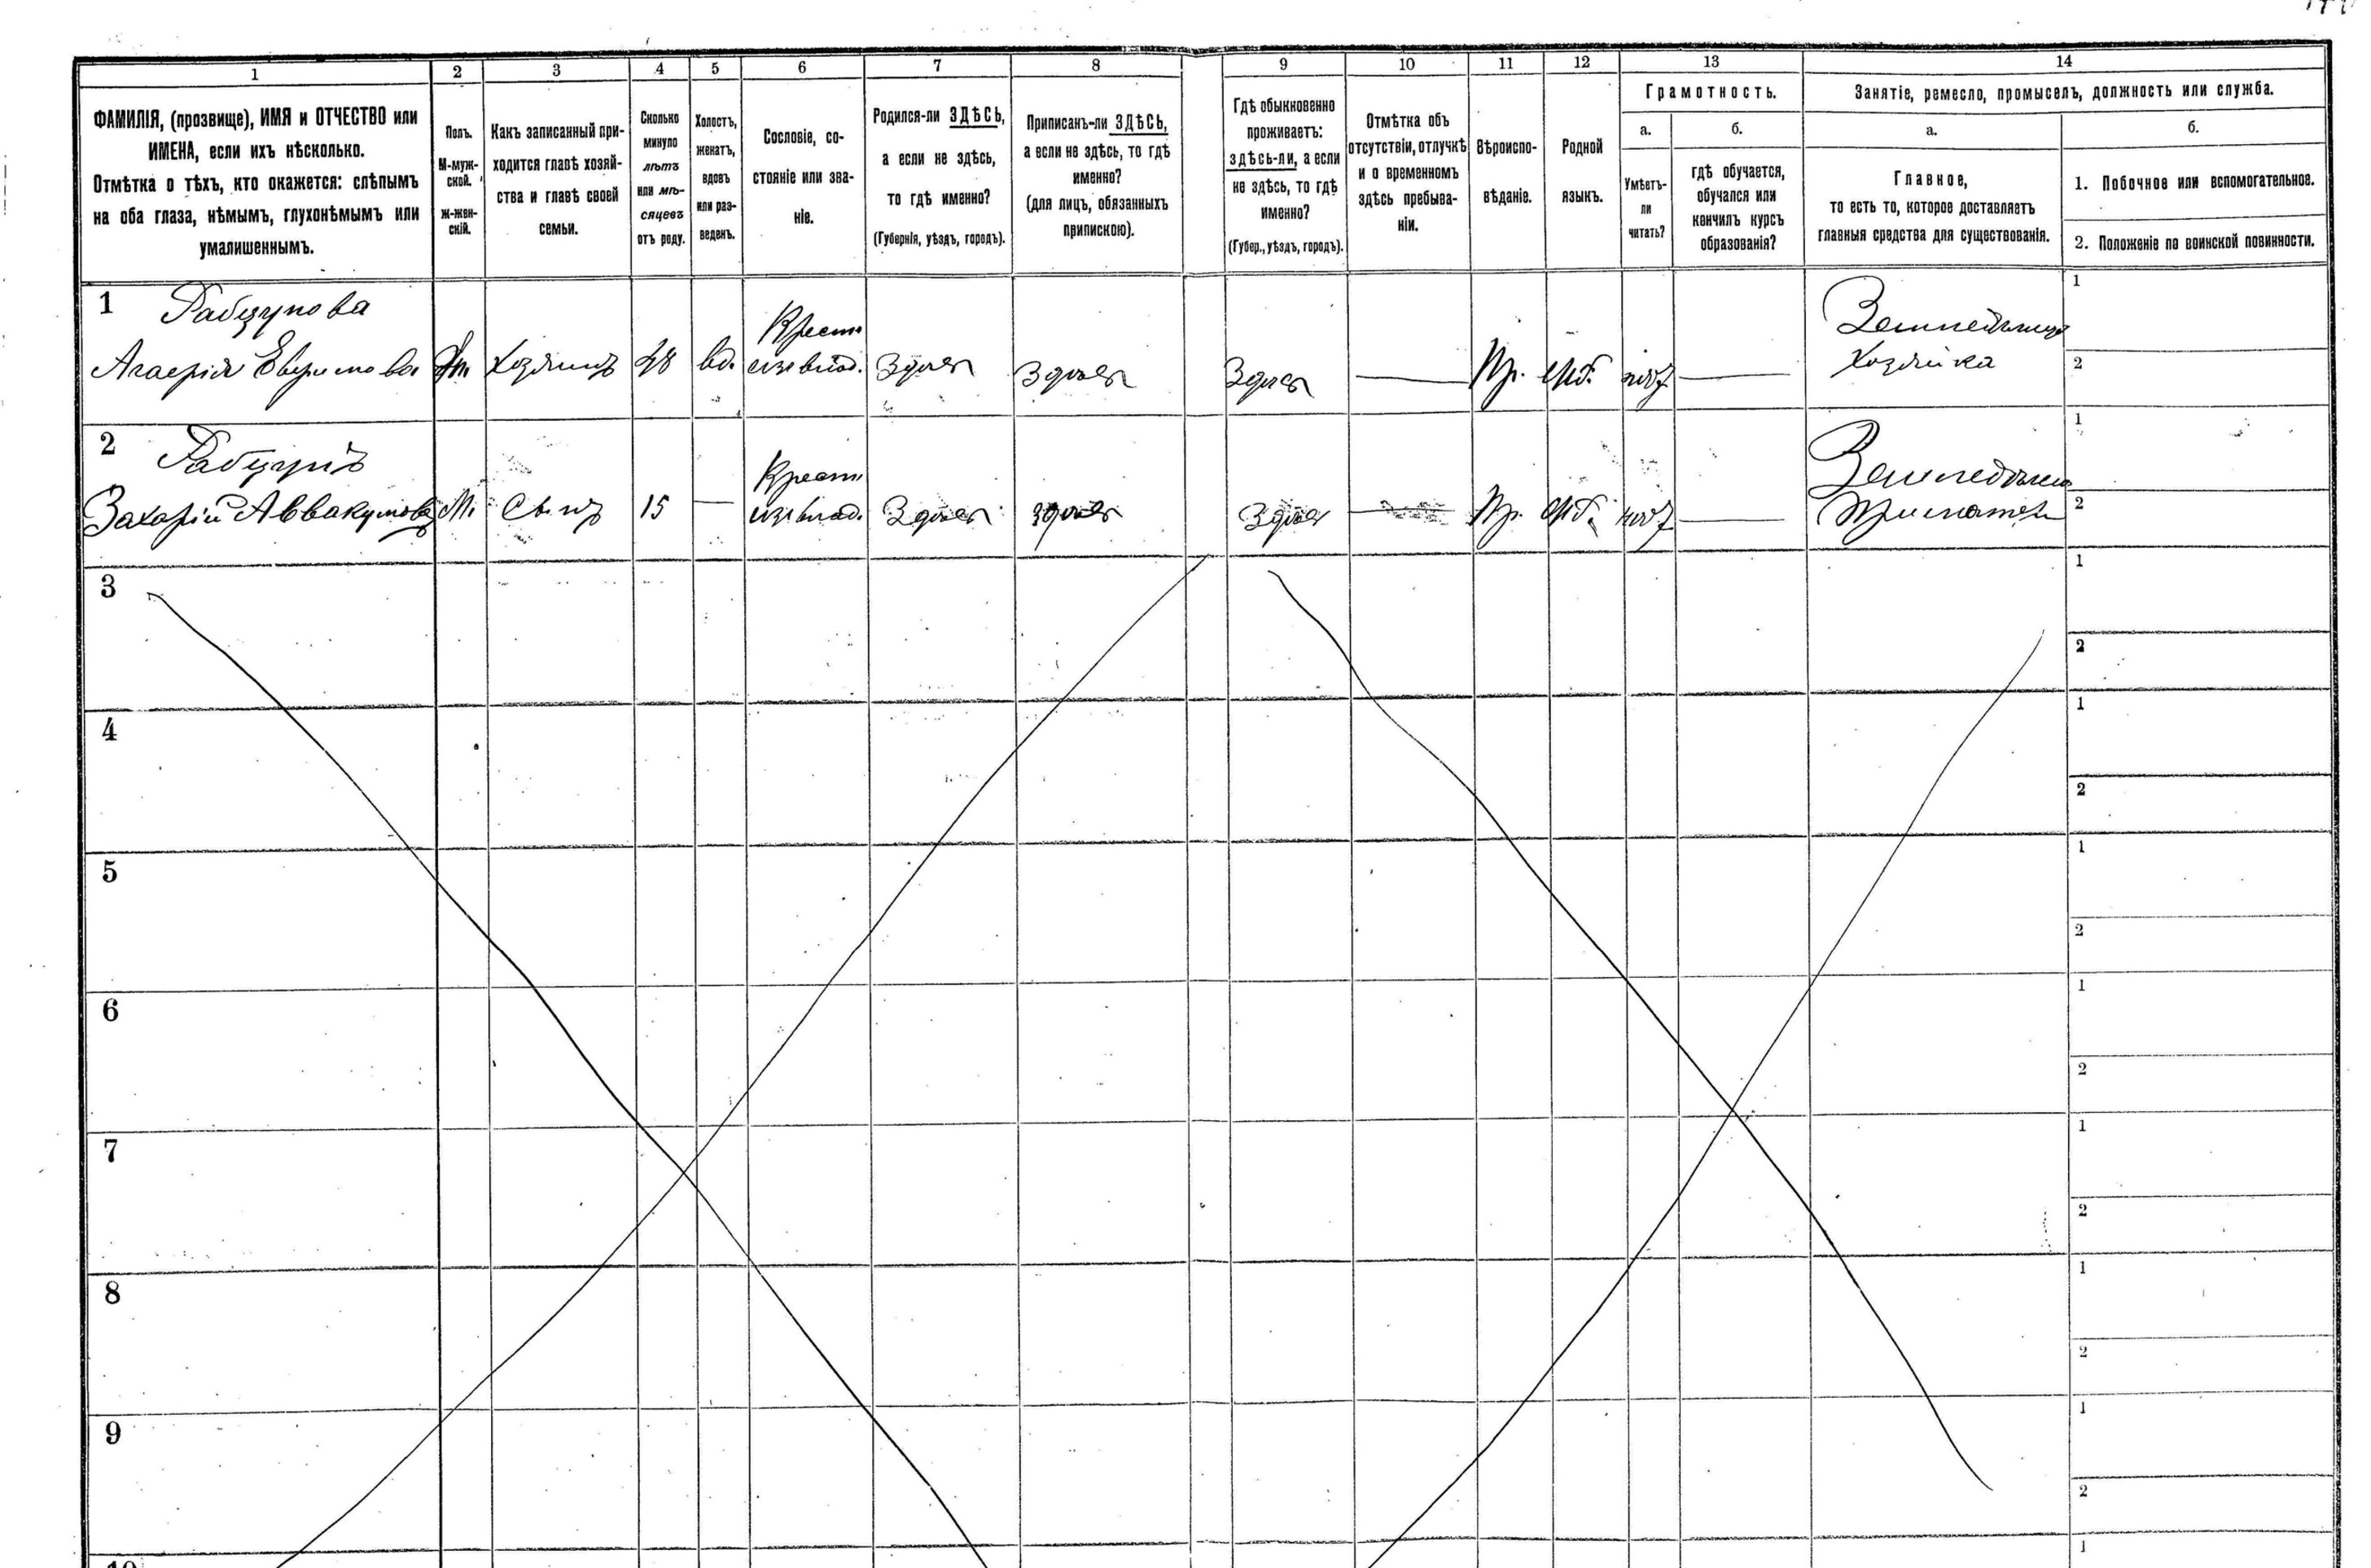 1 2 3 4 5 6 7 8 9 10 11 12 13 14
ФАМИЛІЯ, (прозвище), ИМЯ и ОТЧЕСТВО или
ИМЕНА, если ихъ нѣсколько.
Отмѣтка о тѣхъ, кто окажется: слѣпымъ
на оба глаза, нѣмымъ, глухонѣмымъ или
умалишеннымъ.
Полъ.
М-муж-
ской.
Ж-жен-
скій.
Какъ записанный при-
ходится главѣ хозяй-
ства и главѣ своей
семьи.
Сколько
минуло
лѣтъ
или мѣ-
сяцевъ
отъ роду.
Холостъ,
женатъ,
вдовъ
или раз-
веденъ.
Сословіе, со-
стояніе или зва-
ніе.
Родился-ли ЗДѢСЬ,
а если не здѣсь,
то гдѣ именно?
(Губернія, уѣздъ, городъ).
Приписанъ-ли ЗДѢСЬ,
а если не здѣсь, то гдѣ
именно?
(для лицъ, обязанныхъ
припискою).
Гдѣ обыкновенно
проживаетъ:
здѣсь-ли, а если
не здѣсь, то гдѣ
именно?
(Губер., уѣздъ, городъ).
Отмѣтка объ
отсутствіи, отлучкѣ
и о временномъ
здѣсь пребыва-
ніи.
Вѣроиспо-
вѣданіе.
Родной
языкъ.
Грамотность.
а.
Умѣетъ-
ли
читать?
б.
гдѣ обучается,
обучался или
кончилъ курсъ
образованія?
Занятіе, ремесло, промыселъ, должность или служба.
а.
Главное,
то есть то, которое доставляетъ
главныя средства для существованія.
б.
1. Побочное или вспомогательное.
2. Положеніе по воинской повинности.
1
Агафія
Хозяинъ
48
вд.
Крест.
изъ влад.
Здѣсь
Здѣсь
Здѣсь
Пр.
нѣтъ
Хозяйка
1
2
2
Захарій Аввакумовъ
М.
Сынъ
15
Крест.
изъ влад.
Здѣсь
Здѣсь
Здѣсь
Пр.
нѣтъ
1
2
3
1
2
4
1
2
5
1
2
6
1
2
7
1
2
8
1
2
9
1
2
10
1